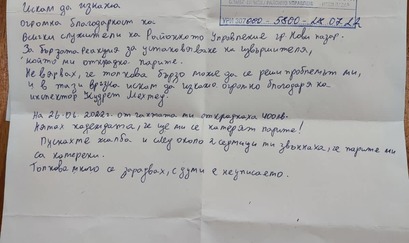 Искам да изкажа
огромна благодарност на
УРИ 307000-5800-28.07.22
Всички служители на Районното Управление гр Нови пазар.
За бързата реакция за установяване на извършителя,
който ми открадна парите.
Не вярвах, че толкова бързо може да се реши проблемът ми,
и в тази връзка искам да изкажа огромно благодаря на
инспектор Кудрет Мехмед
На 26.06.2022г. от чантата ми откраднаха 400лв.
Нямах надеждата, че ще ми се намерят парите!
Пуснахте жалба и след около 2 седмици ми звъннаха, че парите ми
са намерени.
Толкова много се зарадвах, с думи е неуписаето.